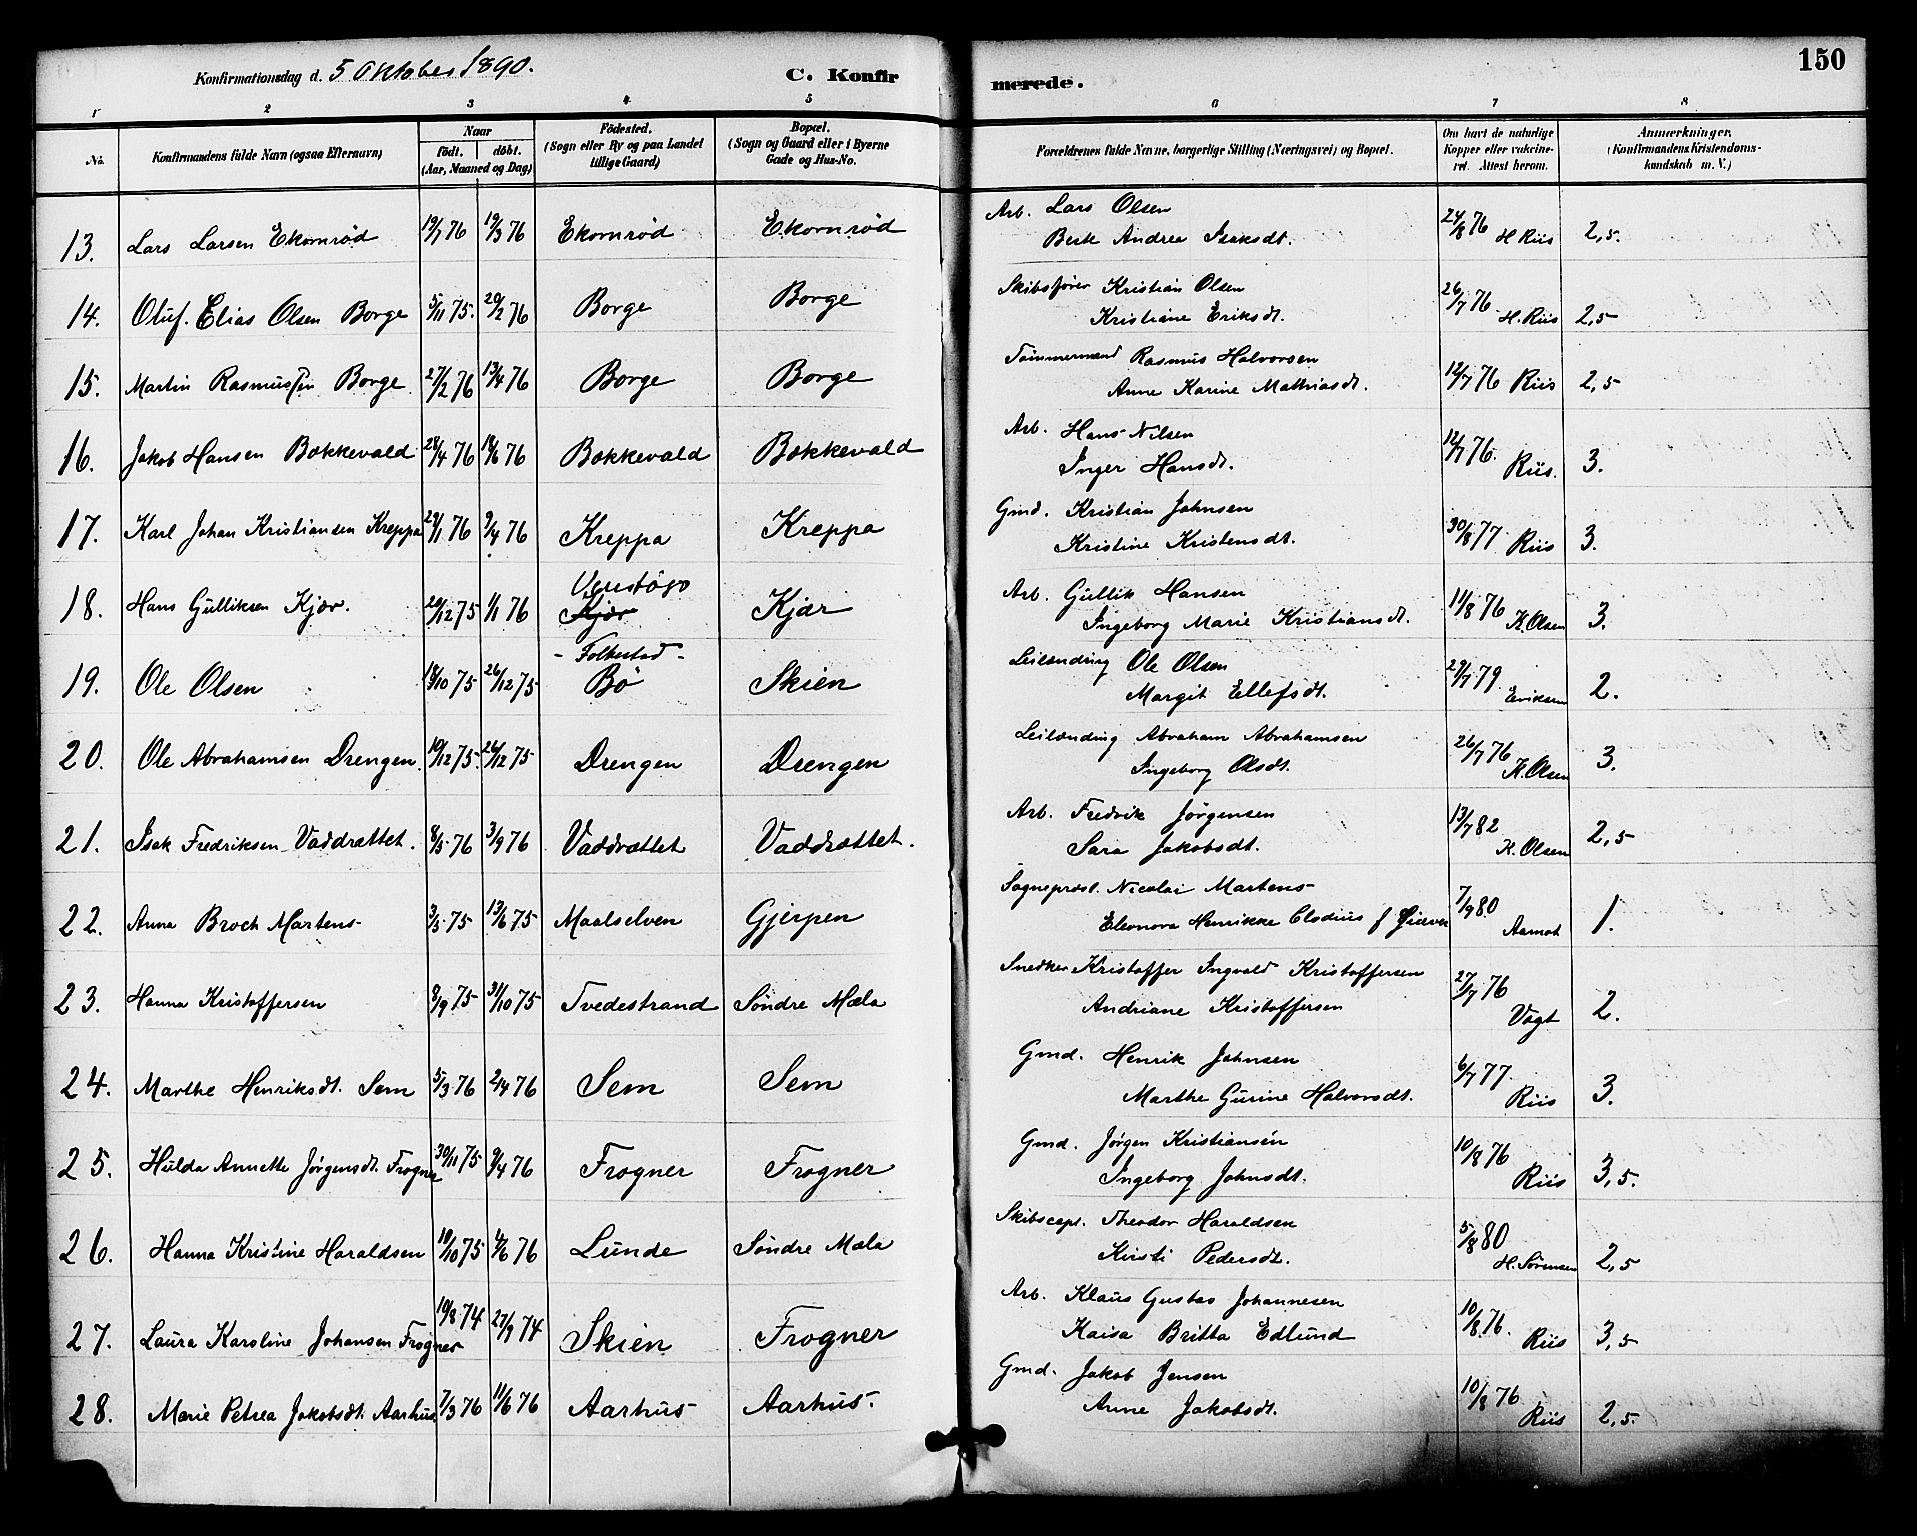 Konfirmationsdag d. 5 Oktober 1890. C. Konfirmerede. 150
1 2 3 4 5 6 7 8
No. Konfirmandens fulde Navn (ogsaa Efternavn) Naar födt. döbt. (Aar, Maaned og Dag) Födested. (Sogn eller By og paa Landet tillige Gaard) Bopæl. (Sogn og Gaard eller i Byerne Gade og Hus-No. Forældrenes fulde Navne, borgerlige Stilling (Næringsvei) og Bopæl. Om havt de naturlige Kopper eller vaccineret. Attest herom. Anmærkninger. (Konfirmandens Kristendomskundskab m. V.)
13. Lars Larsen Ekornrød 19/1 76 19/3 76 Ekornrød Ekornrød Arb. Lars Olsen 24/8 76 H Riis 2,5.
Berte Andrea Isaksdt.
14. Oluf Elias Olsen Borge 5/11 75. 20/2 76 Borge Borge Skibsfører Kristian Olsen 26/7 76 H. Riis 2,5
Kristiane Eriksdt.
15. Martin Rasmussen Borge 27/2 76 13/4 76 Borge Borge Tømmermand Rasmus Halvorsen 12/7 76 Riis 2,5
Anne Karine Mathiasdt.
16. Jakob Hansen Bøkkevald 28/4 76 18/6 76 Bøkkevald Bøkkevald Arb. Hans Nilsen 12/7 76. Riis. 3.
Inger Hansdt.
17. Karl Johan Kristiansen Kreppa 29/1 76 9/4 76 Kreppa Kreppa Gmd. Kristian Johnsen 30/8 77 Riis 3.
Kristine Kristensdt.
18. Hans Gulliksen Kjær. 20/12 75 1/1 76 Kjær Kjær Arb. Gullik Hansen 11/8 76 K. Olsen 3.
Ingeborg Marie Kristiansdt.
19. Ole Olsen 18/10 75 26/12 75 - Folkestad - Bø Skien Leilænding Ole Olsen 29/7 79 Eriksen 2.
Margit Ellefsdt.
20. Ole Abrahamsen Drengen. 10/12 75. 26/12 75 Drengen Drengen Leilænding Abraham Abrahamsen 26/7 76 K. Olsen 3.
Ingeborg Olsdt.
21. Isak Fredriksen Vaddrættet. 8/5 76 3/9 76 Vaddrættet Vaddrættet. Arb. Fredrik Jørgensen 13/7 82 K. Olsen 2,5
Sara Jakobsdt.
22. Anna Broch Martens 3/5 75 13/6 75 Maalselven Gjerpen Sognepræst. Nicolai Martens 7/9 80 Aamot 1.
Eleonora Henrikke Clodius f
23. Hanna Kristoffersen 8/9 75 31/10 75 Tvedestrand Søndre Mæla Snedker Kristoffer Ingvald Kristoffersen 27/7 76 Vogt 2.
Andriane Kristoffersen
24. Marthe Henriksdt. Sem 5/3 76 2/4 76 Sem Sem Gmd. Henrik Johnsen 6/7 77 Riis 3.
Marthe Gurine Halvorsdt.
25. Hulda Annette Jørgensdt. Frogner 30/11 75 9/4 76 Frogner Frogner Gmd. Jørgen Kristiansen 10/8 76 Riis 3,5.
Ingeborg Johnsdt.
26. Hanna Kristine Haraldsen 10/10 75 4/6 76 Lunde Søndre Mæla Skibscapt. Theodor Haraldsen 5/8 80 H. Sørensen 2,5
Kirsti Pedersdt.
27. Laura Karoline Johansen Frogner 10/8 74 27/9 74 Skien Frogner Arb. Klaus Gustav Johannesen 10/8 76. Riis 3,5
Kaisa Britta Edlund
28. Marie Petrea Jakobsdt. Aarhus 7/3 76 11/6 76 Aarhus Aarhus. Gmd. Jakob Jensen 10/8 76 Riis 2,5.
Anne Jakobsdt.